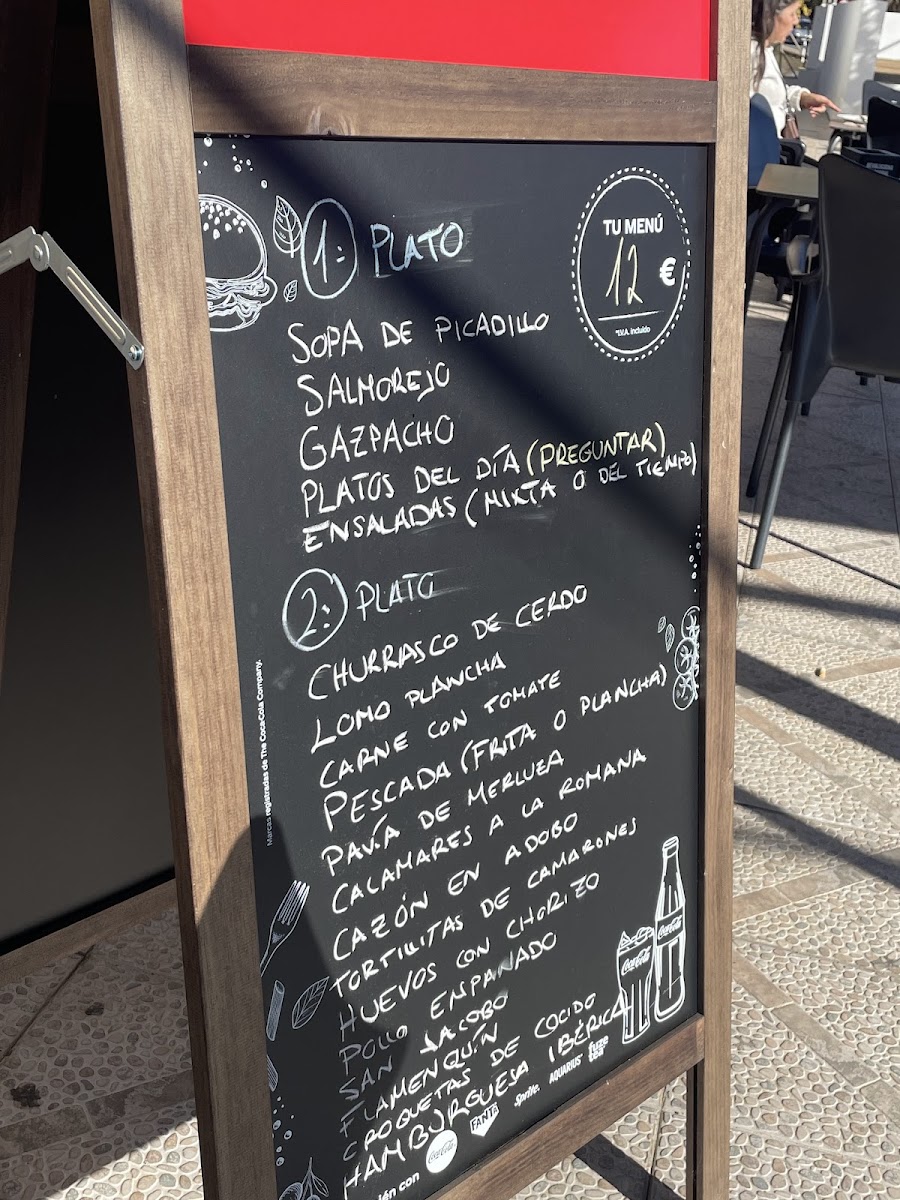 1: PLATO
TU MENÚ
12 €
*I.V.A. incluido
SOPA DE PICADILLO
SALMOREJO
GAZPACHO
PLATOS DEL DÍA (PREGUNTAR)
ENSALADAS (MIXTA O DEL TIEMPO)
2: PLATO
CHURRASCO DE CERDO
LOMO PLANCHA
CARNE CON TOMATE
PESCADA (FRITA O PLANCHA)
PAVÍA DE MERLUZA
CALAMARES A LA ROMANA
CAZÓN EN ADOBO
TORTILLITAS DE CAMARONES
HUEVOS CON CHORIZO
POLLO EMPANADO
SAN JACOBO
FLAMENQUÍN
CROQUETAS DE COCIDO
HAMBURGUESA IBÉRICA
Marcas registradas de The Coca-Cola Company.
Coca-Cola
Coca-Cola
ién con Coca-Cola FANTA Sprite. AQUARIUS fuze tea